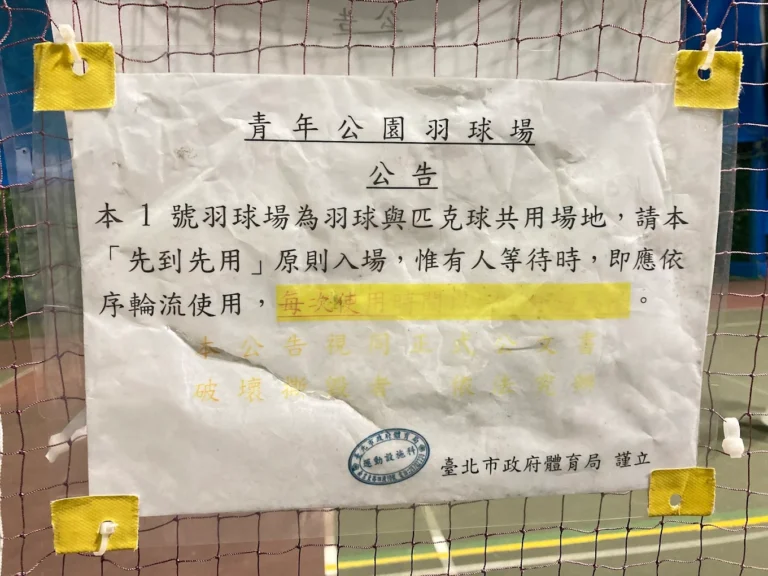 公告
青年公園羽球場
公告
本1號羽球場為羽球與匹克球共用場地，請本
「先到先用」原則入場，惟有人等待時，即應依
序輪流使用，每次使用時間。
本公告視同正式公文書
破壞撕毀者 依法究辦
臺北市政府體育局
運動設施科
臺北市政府體育局 謹立